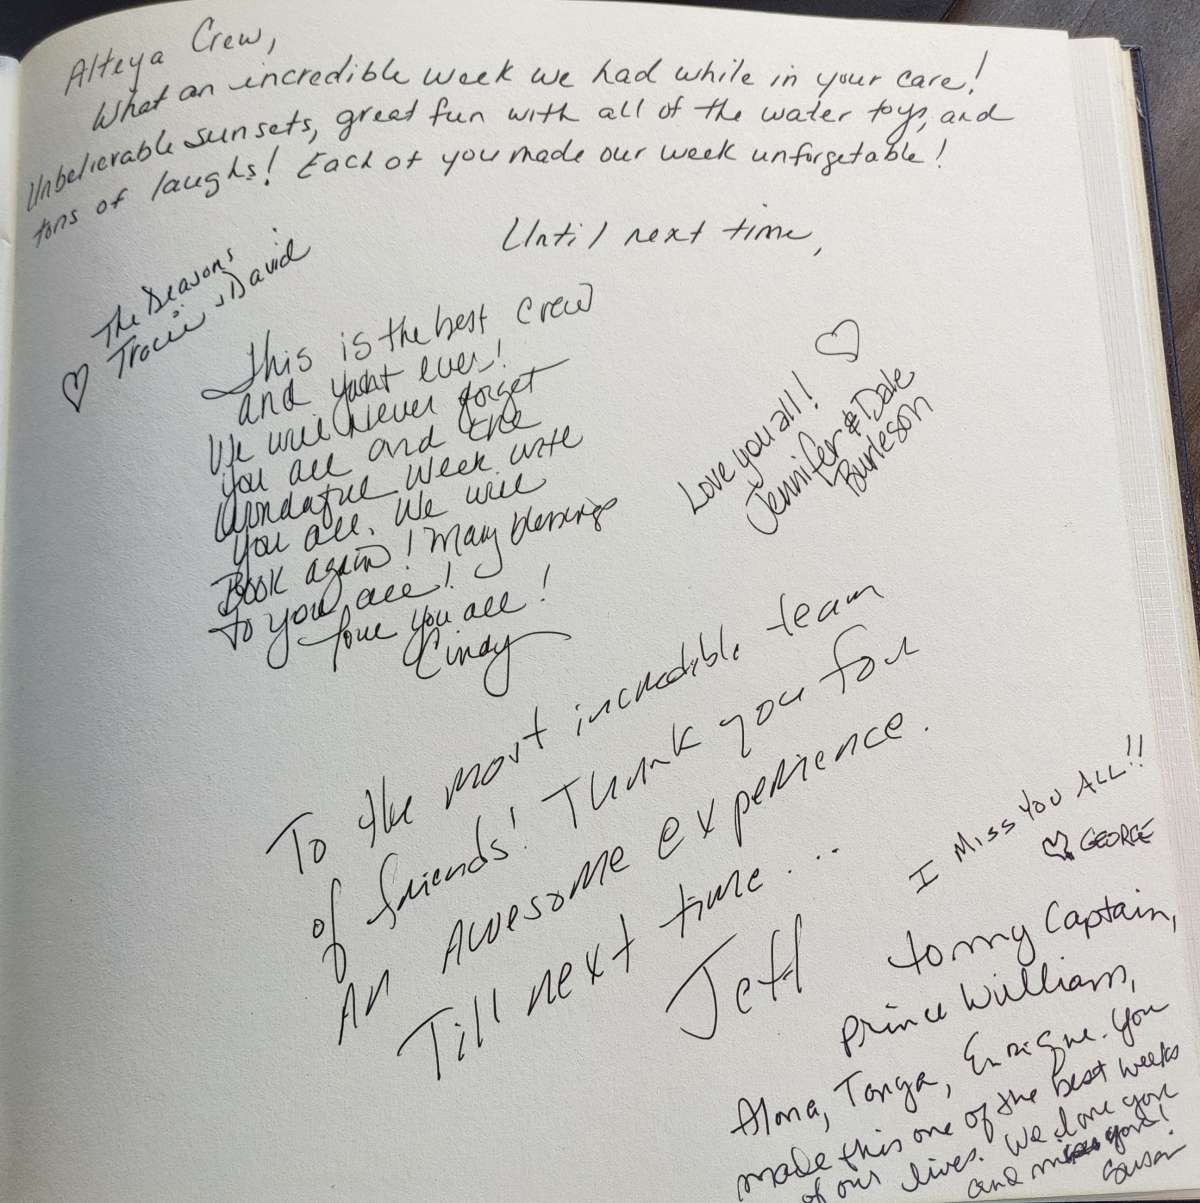 Alteya Crew,
What an incredible week we had while in your care!
Unbelievable sunsets, great fun with all of the water toys, and
tons of laughs! Each of you made our week unforgetable!
Until next time,
The Deasons
Tracie & David
This is the best crew
and yacht ever!
We will never forget
you all and the
Wonderful Week with
you all. We will
Book again! Many blessings
to you all!
Love you all!
Cindy
Love you all!
Jennifer & Dale
Burleson
To the most incredible team
of friends! Thank you for
an Awesome experience.
Till next time...
Jeff
I MISS YOU ALL!!
GEORGE
to my Captain,
Prince William,
Alona, Tonga, Enrique. You
made this one of the best weeks
of our lives. We love you
and miss you!
Susan